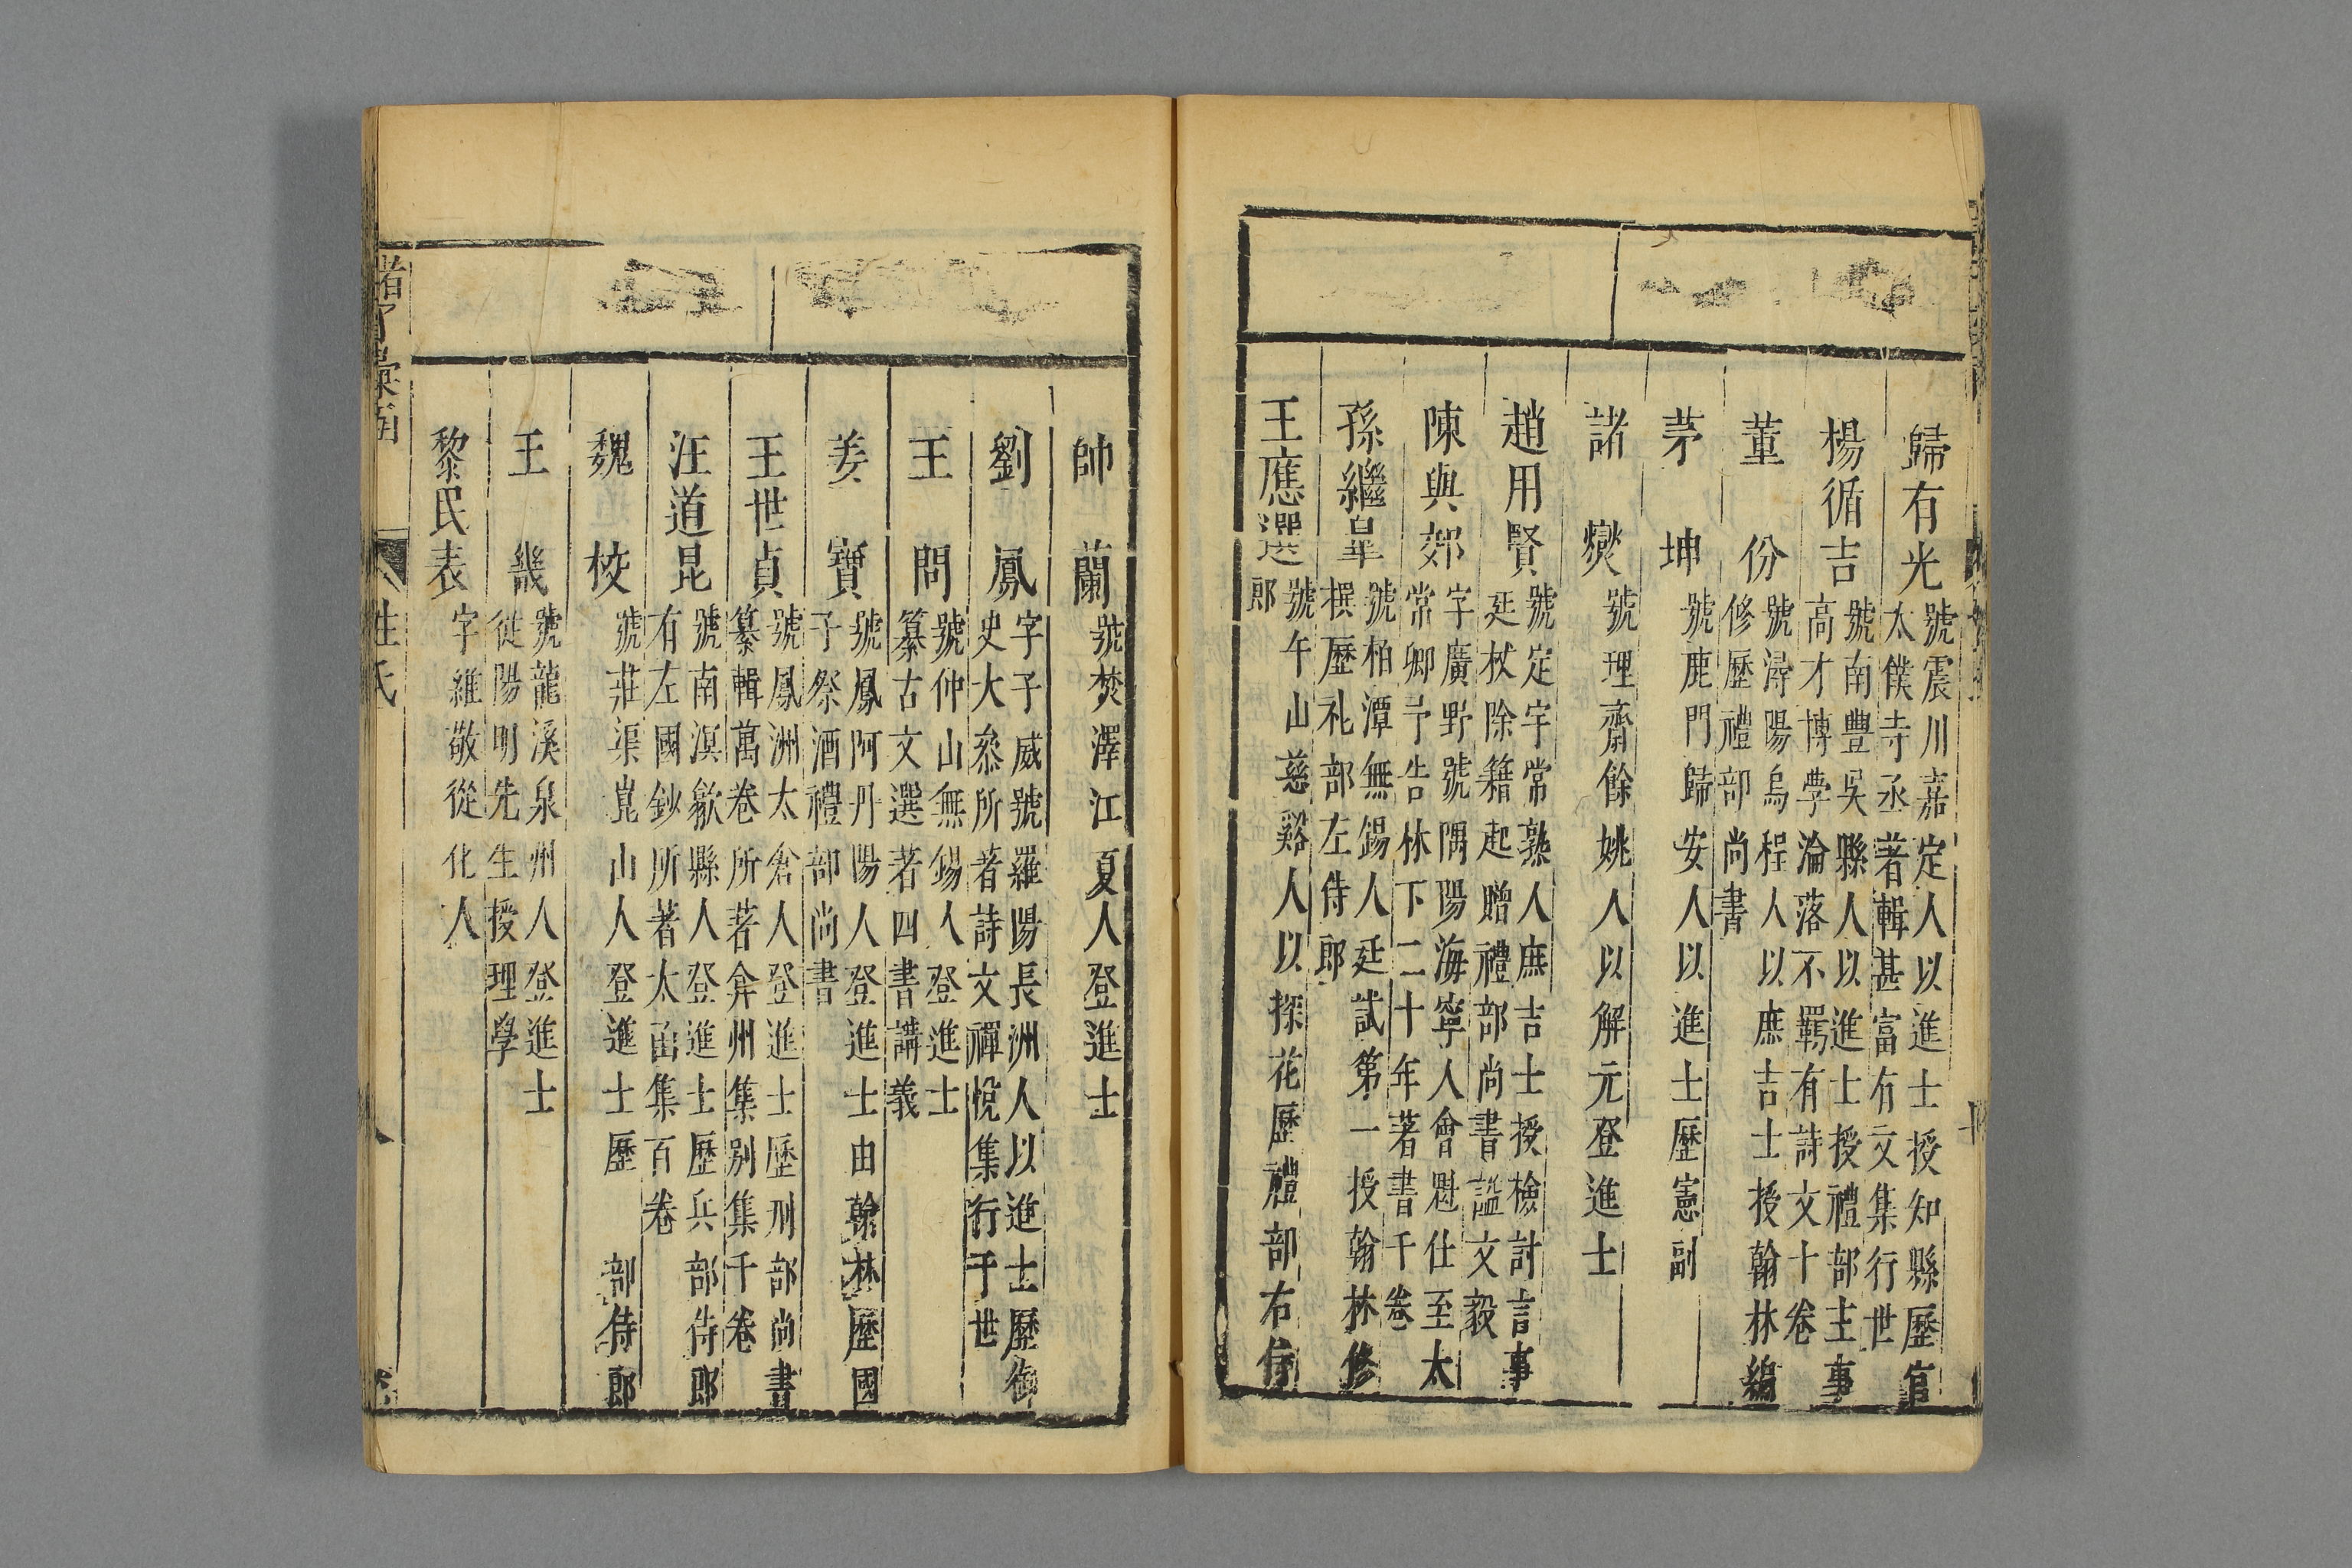 歸有光號震川嘉定人以進士授知縣歷官
太僕寺丞著輯甚富有文集行世
楊循吉號南豊吳縣人以進士授禮部主事
高才博學淪落不羈有詩文十卷
董份號潯陽烏程人以庶吉士授翰林編
修歷禮部尚書
茅坤號鹿門歸安人以進士歷憲副
諸燮號理齋餘姚人以解元登進士
趙用賢號定宇常熟人庶吉士授檢討言事
廷杖除籍起贈禮部尚書謚文毅
陳與郊字廣野號隅陽海寧人會魁仕至太
常卿予告林下二十年著書千卷
孫繼皐號柏潭無錫人廷試第一授翰林修
撰歷礼部左侍郎
王應選號午山慈谿人以探花歷禮部右侍
郎
帥蘭號焚澤江夏人登進士
劉鳳字子威號羅陽長洲人以進士歷御
史大叅所著詩文禪悅集行于世
王問號仲山無錫人登進士
纂古文選著四書講義
姜寶號鳳阿丹陽人登進士由翰林歷國
子祭酒禮部尚書
王世貞號鳳洲太倉人登進士歷刑部尚書
纂輯萬卷所著弇州集別集千卷
汪道昆號南溟歙縣人登進士歷兵部侍郎
有左國鈔所著太凾集百卷
魏校號莊渠崑山人登進士歷部侍郎
王畿號龍溪泉州人登進士
從陽明先生授理學
黎民表字維敬從化人
姓氏